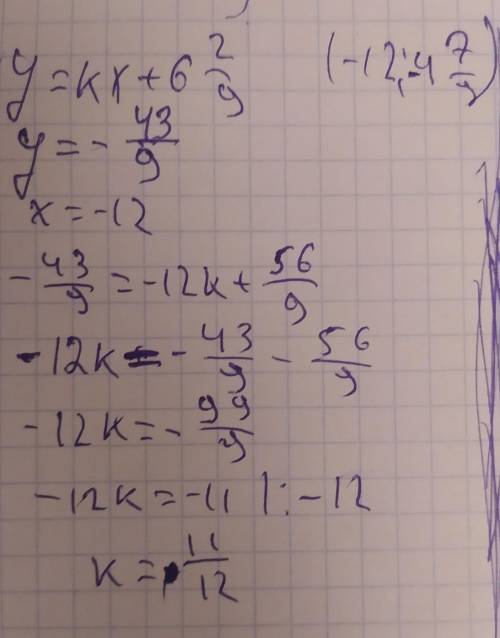 y = kx + 6 2/9 (-12; -4 7/9)
y = - 43/9
x = -12
- 43/9 = -12k + 56/9
-12k = - 43/9 - 56/9
-12k = - 99/9
-12k = -11 |: -12
k = 11/12